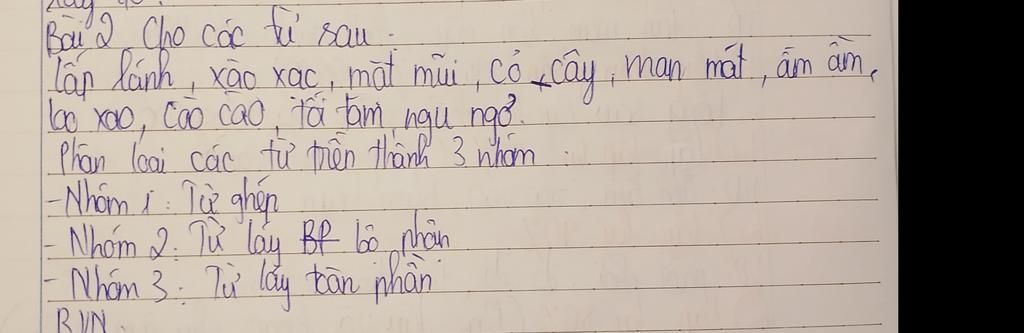 Bài 2 Cho các từ sau.
lấp lánh, xào xạc, mặt mũi, cỏ cây, man mát, ầm ầm,
lao xao, cào cào, tối tăm, ngu ngơ.
Phân loại các từ trên thành 3 nhóm.
- Nhóm 1: Từ ghép
- Nhóm 2: Từ láy bộ phận
- Nhóm 3: Từ láy toàn phần
BVN